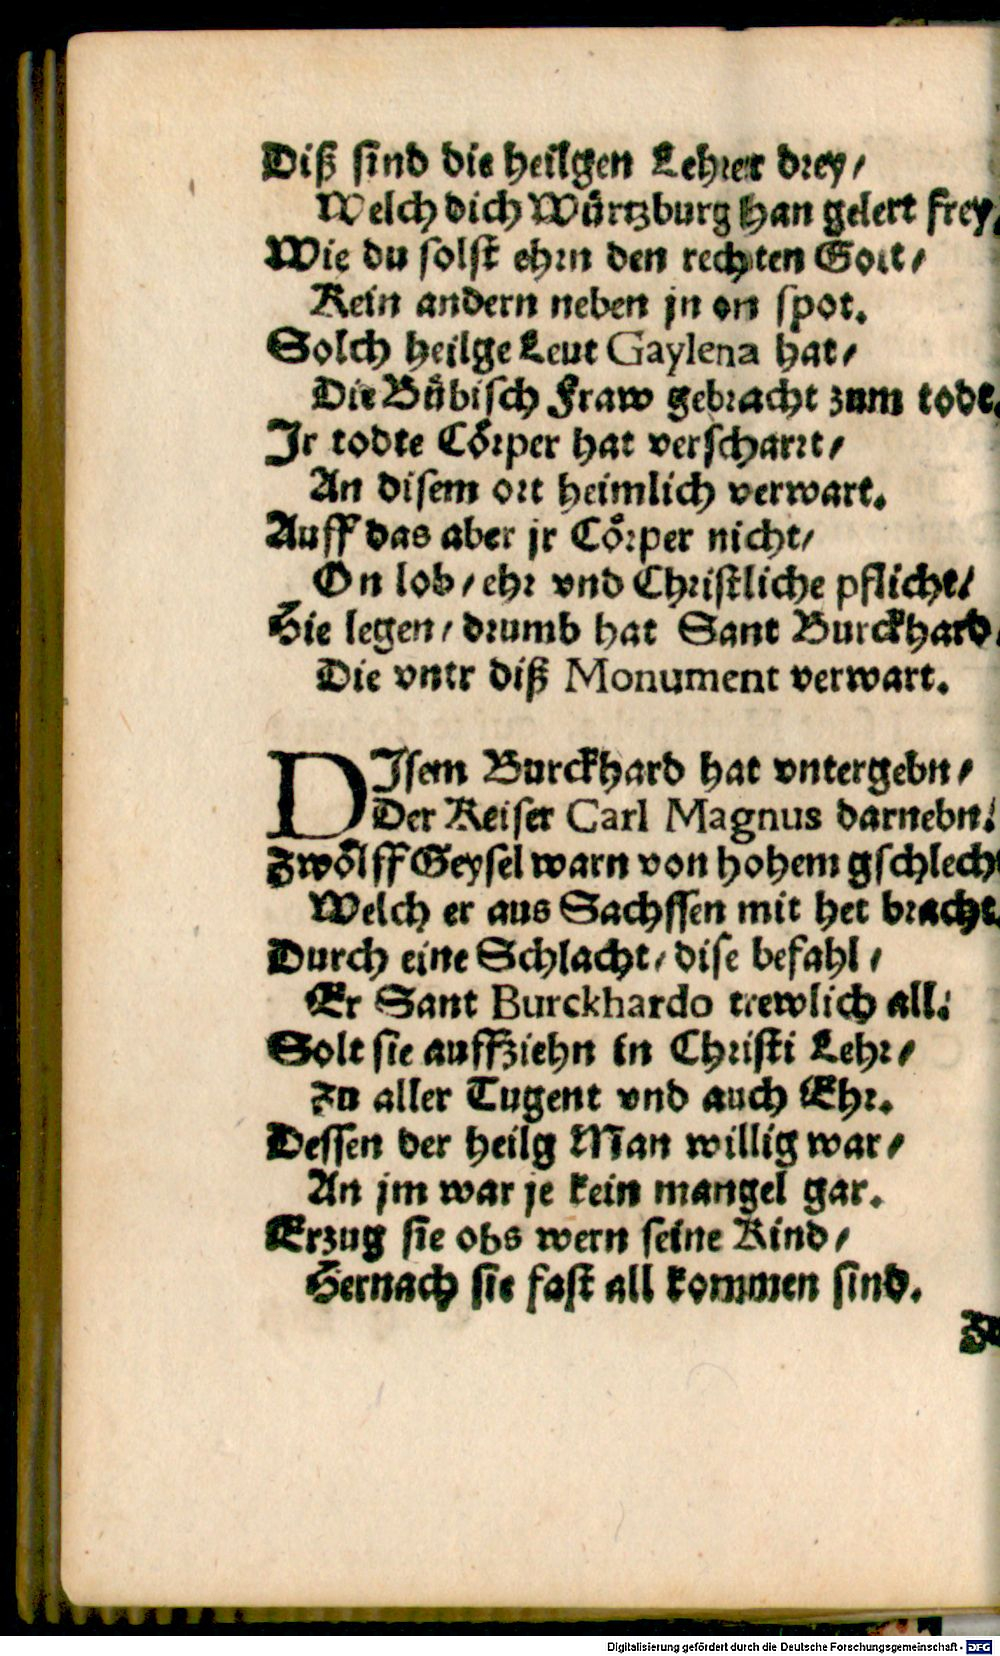 Diß sind die heilgen Lehrer drey/
Welch dich Wuͤrtzburg han gelert frey/
Wie du solst ehrn den rechten Gott/
Kein andern neben jn on spot.
Solch heilge Leut Gaylena hat/
Die Buͤbisch Fraw gebracht zum todt.
Jr todte Coͤrper hat verscharrt/
An disem ort heimlich verwart.
Auff das aber jr Coͤrper nicht/
On lob/ ehr vnd Christliche pflicht/
Hie legen/ drumb hat Sant Burckhard/
Die vntr diß Monument verwart.
DJsem Burckhard hat vntergebn/
Der Keiser Carl Magnus darnebn/
Zwoͤlff Geysel warn von hohem gschlecht
Welch er aus Sachssen mit het bracht.
Durch eine Schlacht/ dise befahl/
Er Sant Burckhardo trewlich all:
Solt sie auffziehn in Christi Lehr/
Zu aller Tugent vnd auch Ehr.
Dessen der heilg Man willig war/
An jm war je kein mangel gar.
Erzug sie obs wern seine Kind/
Hernach sie fast all kommen sind.
Digitalisierung gefördert durch die Deutsche Forschungsgemeinschaft - DFG